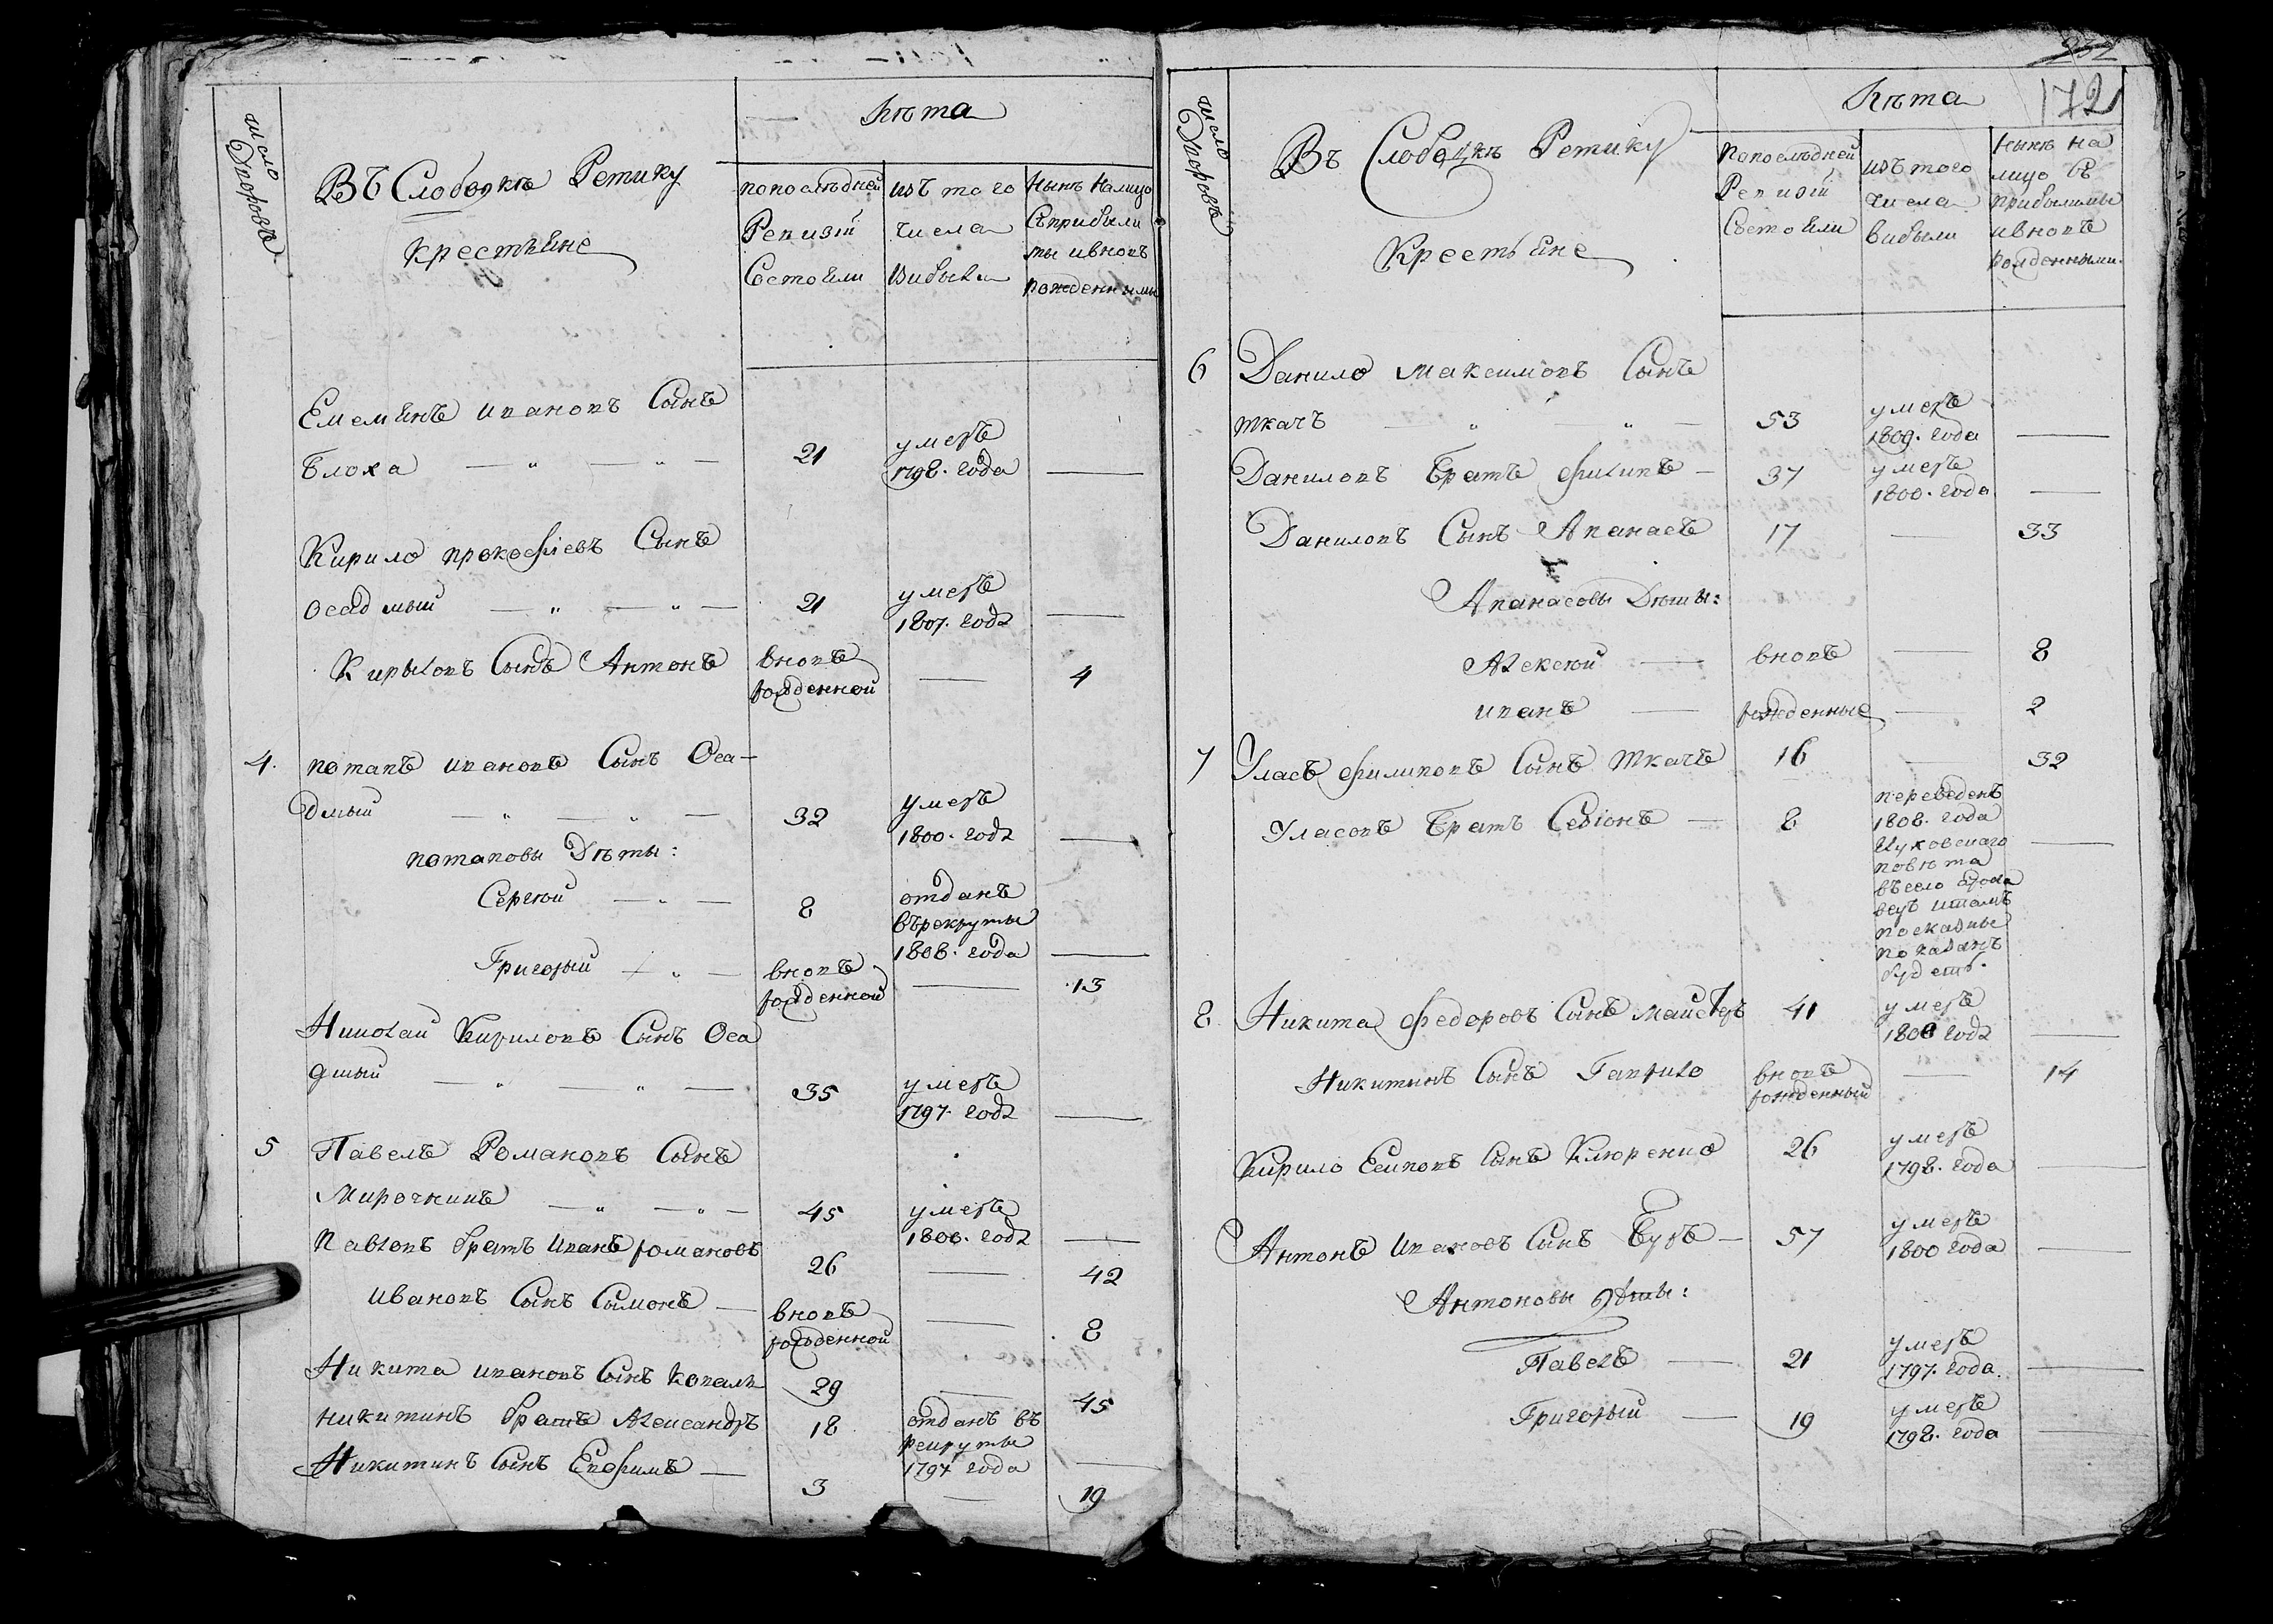 число Дворовъ
Въ Слободкѣ Ретику
крестьяне
Лѣта
попослѣдней Ревизіи Состояли
изъ того числа выбыли
Нынѣ Налицо Съприбылы ми ивновь рожденными
Емельянъ ивановъ Сынъ
Блоха 21 умеръ 1798. года —
Кирило прокофіевъ Сынъ
осадчый 21 умеръ 1807. года —
Кириловъ Сынъ Антонъ вновь рожденной — 4
4. потапъ ивановъ Сынъ Оса-
дчый 32 умеръ 1800. года —
потаповы Дѣты:
Сергѣй 8 отданъ върекруты 1808. года —
Григорый вновь рожденной — 13
Николай Кириловъ Сынъ Оса
дчый 35 умеръ 1797. года —
5 Павелъ Романовъ Сынъ
Мирочникъ 45 умеръ 1800. года —
Павловъ братъ иванъ романовъ 26 — 42
ивановъ Сынъ Самонъ — вновь рожденной — 8
Никита ивановъ Сынъ коваль 29 — 45
никитинъ братъ Александръ 18 отданъ въ рекруты 1797 года —
Никитинъ Сынъ Ефимъ — 3 — 19
172
число Дворовъ
Въ Слободкѣ Ретику
Крестьяне
Лѣта
попослѣдней Ревизіи Состояли
изъ того числа выбыли
Нынѣ на лицо съ прибылыми ивновь рожденными.
6 Данило максимовъ Сынъ
ткачъ 53 умеръ 1809. года —
Даниловъ Братъ филипъ — 37 умеръ 1800. года —
Даниловъ Сынъ Апанасъ 17 — 33
Апанасовы Дѣты:
Алексѣй — вновь — 8
иванъ — рожденные — 2
7 Уласъ филиповъ Сынъ ткачъ 16 — 32
Уласовъ Братъ — 8 переведенъ 1808. года повѣта въсело итамъ показанъ будетъ. —
8 Никита федоровъ Сынъ майстеръ 41 умеръ 1808 года —
Никитинъ Сынъ Гаврило вновь рожденный — 14
Кирило Есиповъ Сынъ 26 умеръ 1798. года —
Антонъ ивановъ Сынъ — 57 умеръ 1800 года —
Антоновы дѣты:
Павелъ — 21 умеръ 1797. года. —
Григорый — 19 умеръ 1798. года —